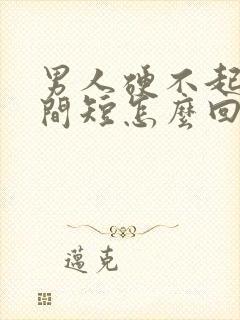 男人硬不起
間短怎麼回
邁克